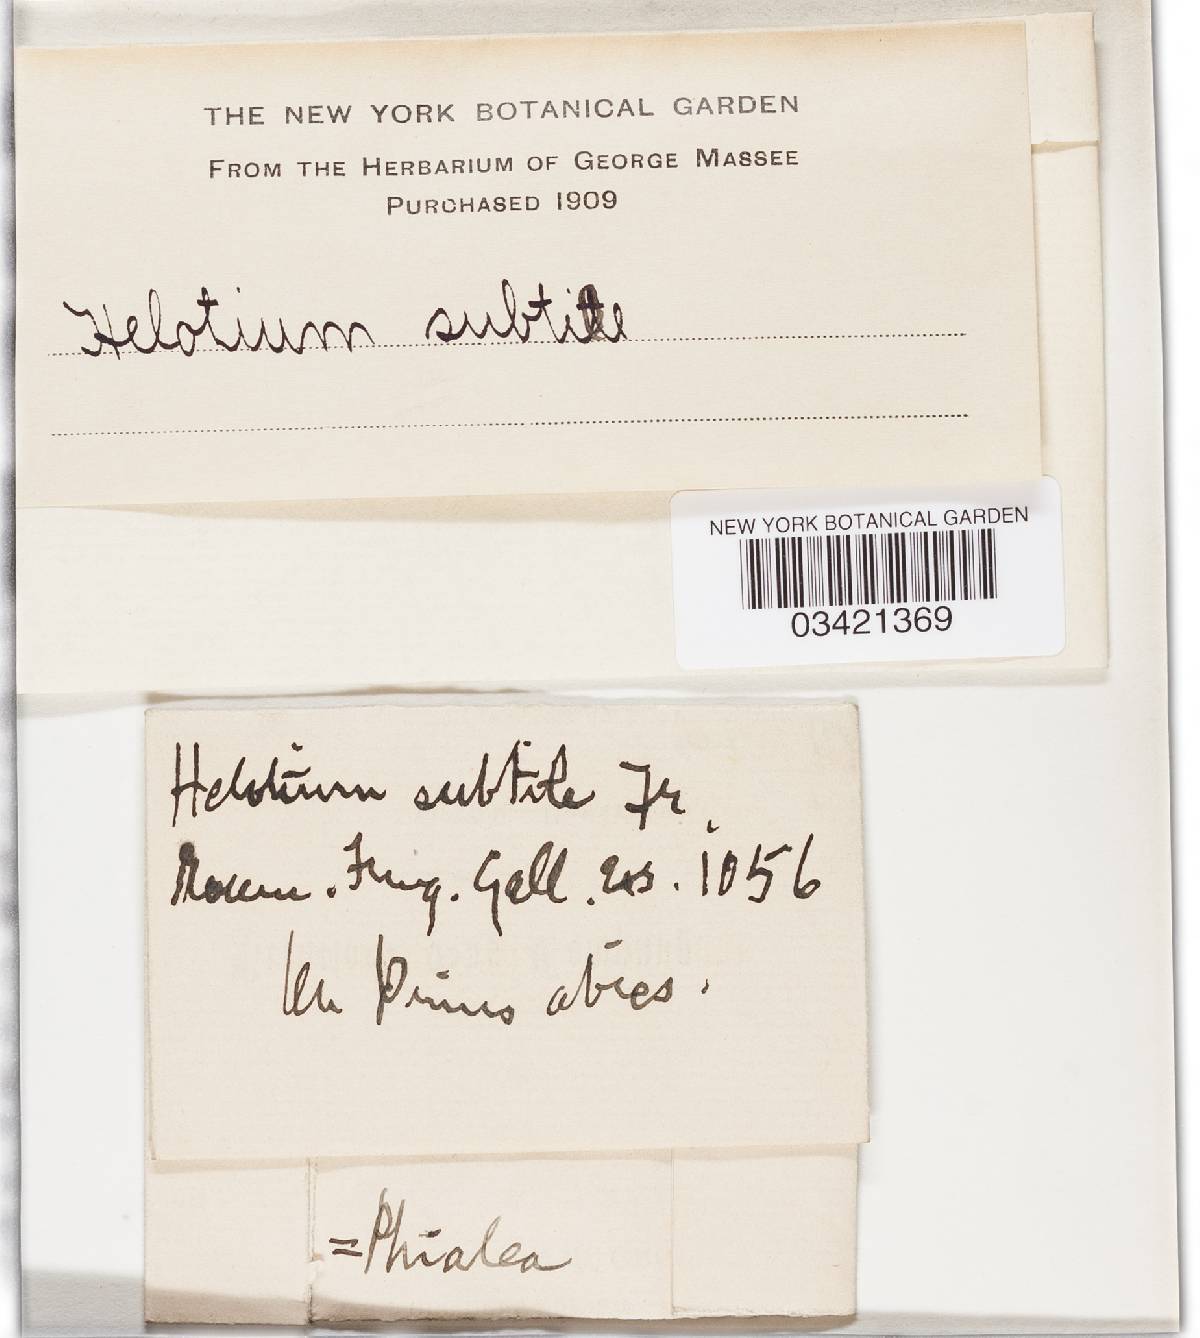 THE NEW YORK BOTANICAL GARDEN
FROM THE HERBARIUM OF GEORGE MASSEE
PURCHASED 1909
Helotium subtile
NEW YORK BOTANICAL GARDEN
03421369
Helotium subtile Fr.
Roum. Fung. Gall. exs. 1056
On Pinus abies.
=Phialea